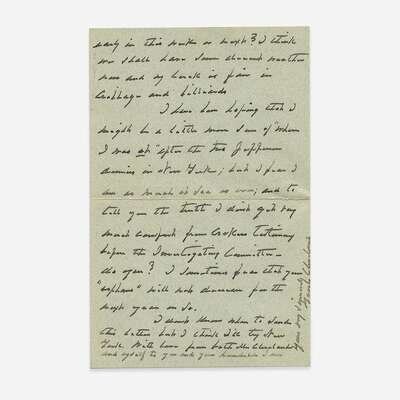 early in this week or next? I think
we shall have some decent weather
now and my hand is fine in
Cribbage and billiards
I have been hoping that I
might be a little more sure of "where
I was at" after the two Jefferson
dinners in New York; but I fear I
am as much at sea as ever; and to
tell you the truth I didn't get very
much comfort from Crokers testimony
before the Investigating Committee—
did you? I sometimes fear that you
"orphans" will not  for the
next year or so.
I don't know where to send
this letter but I think I'll try New
York. With love from both Mrs Cleveland
and myself to you and your household I am
Yours very sincerely
Grover Cleveland